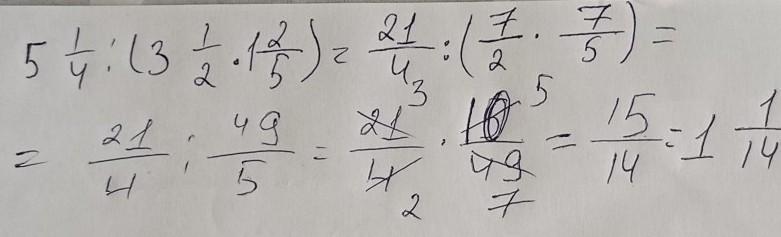 5 1/4 : (3 1/2 · 1 2/5) = 21/4 : (7/2 · 7/5) =
= 21/4 : 49/5 = 21/4 3 2 · 10/49 5 7 = 15/14 = 1 1/14